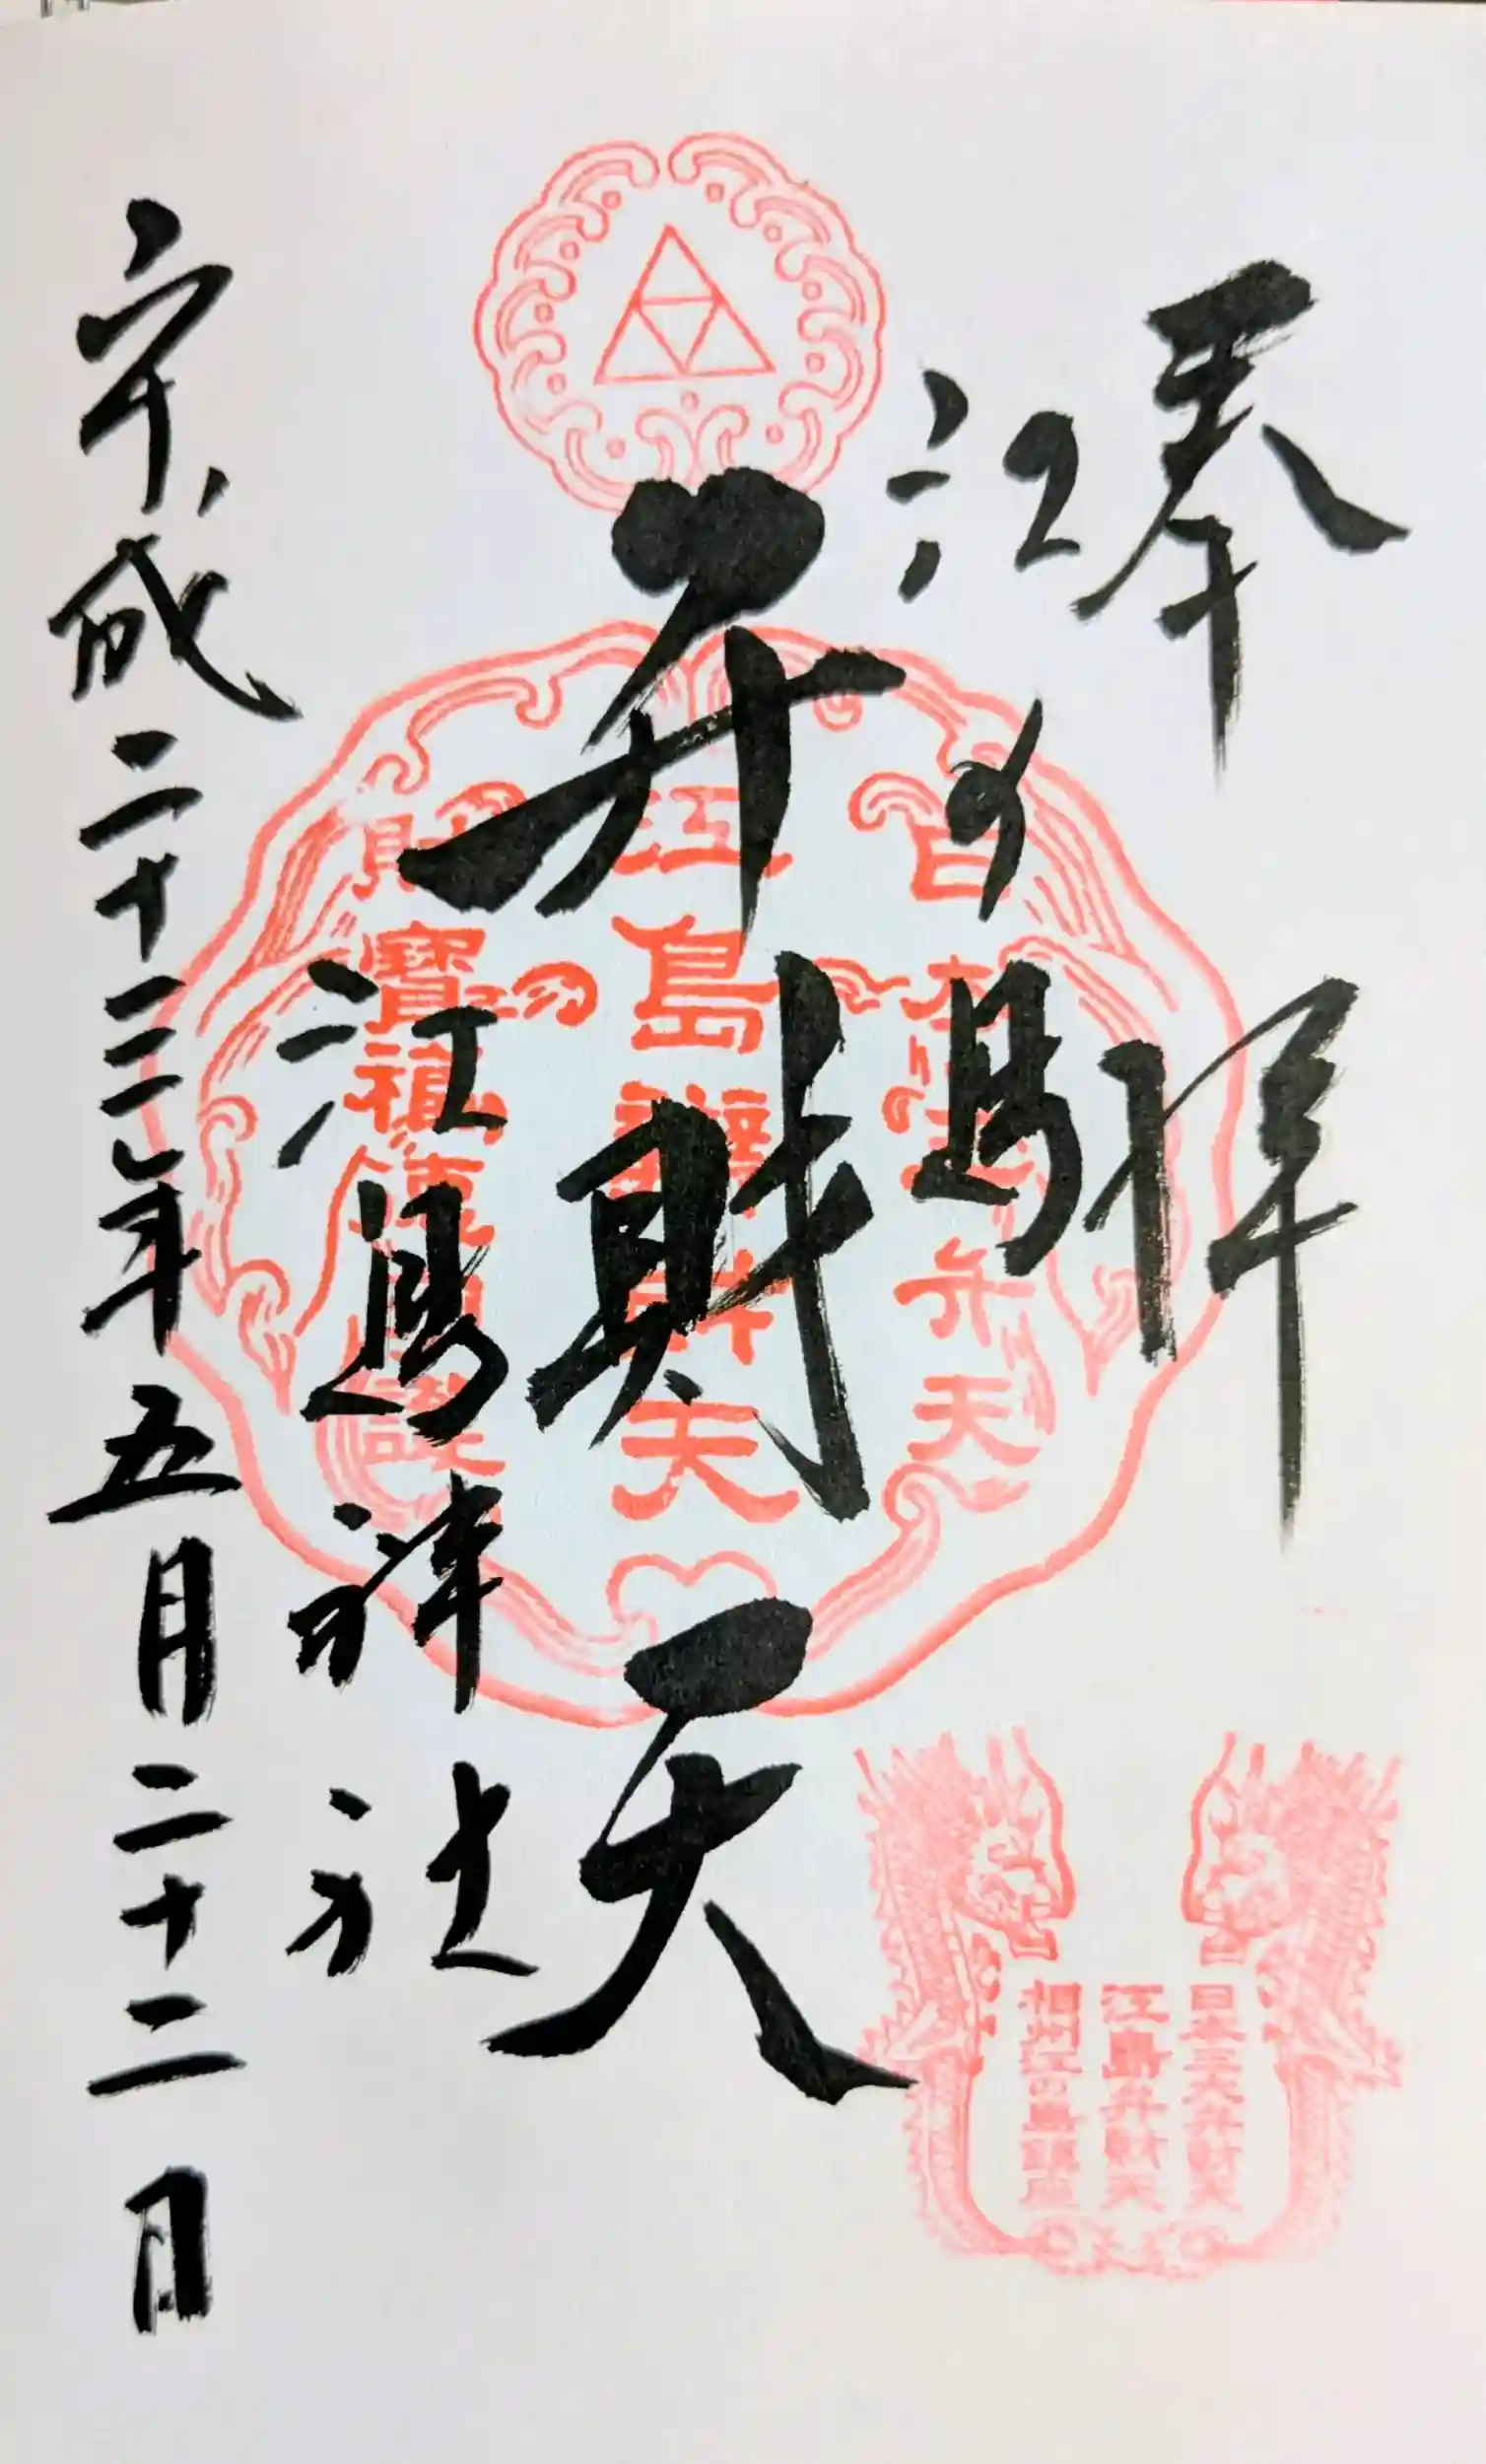 奉拝
江の島
弁財天
江島神社
平成二十三年五月二十二日
江島辯財天
財寶福徳
日本三大弁財天
江島弁財天
相州江の島鎮座